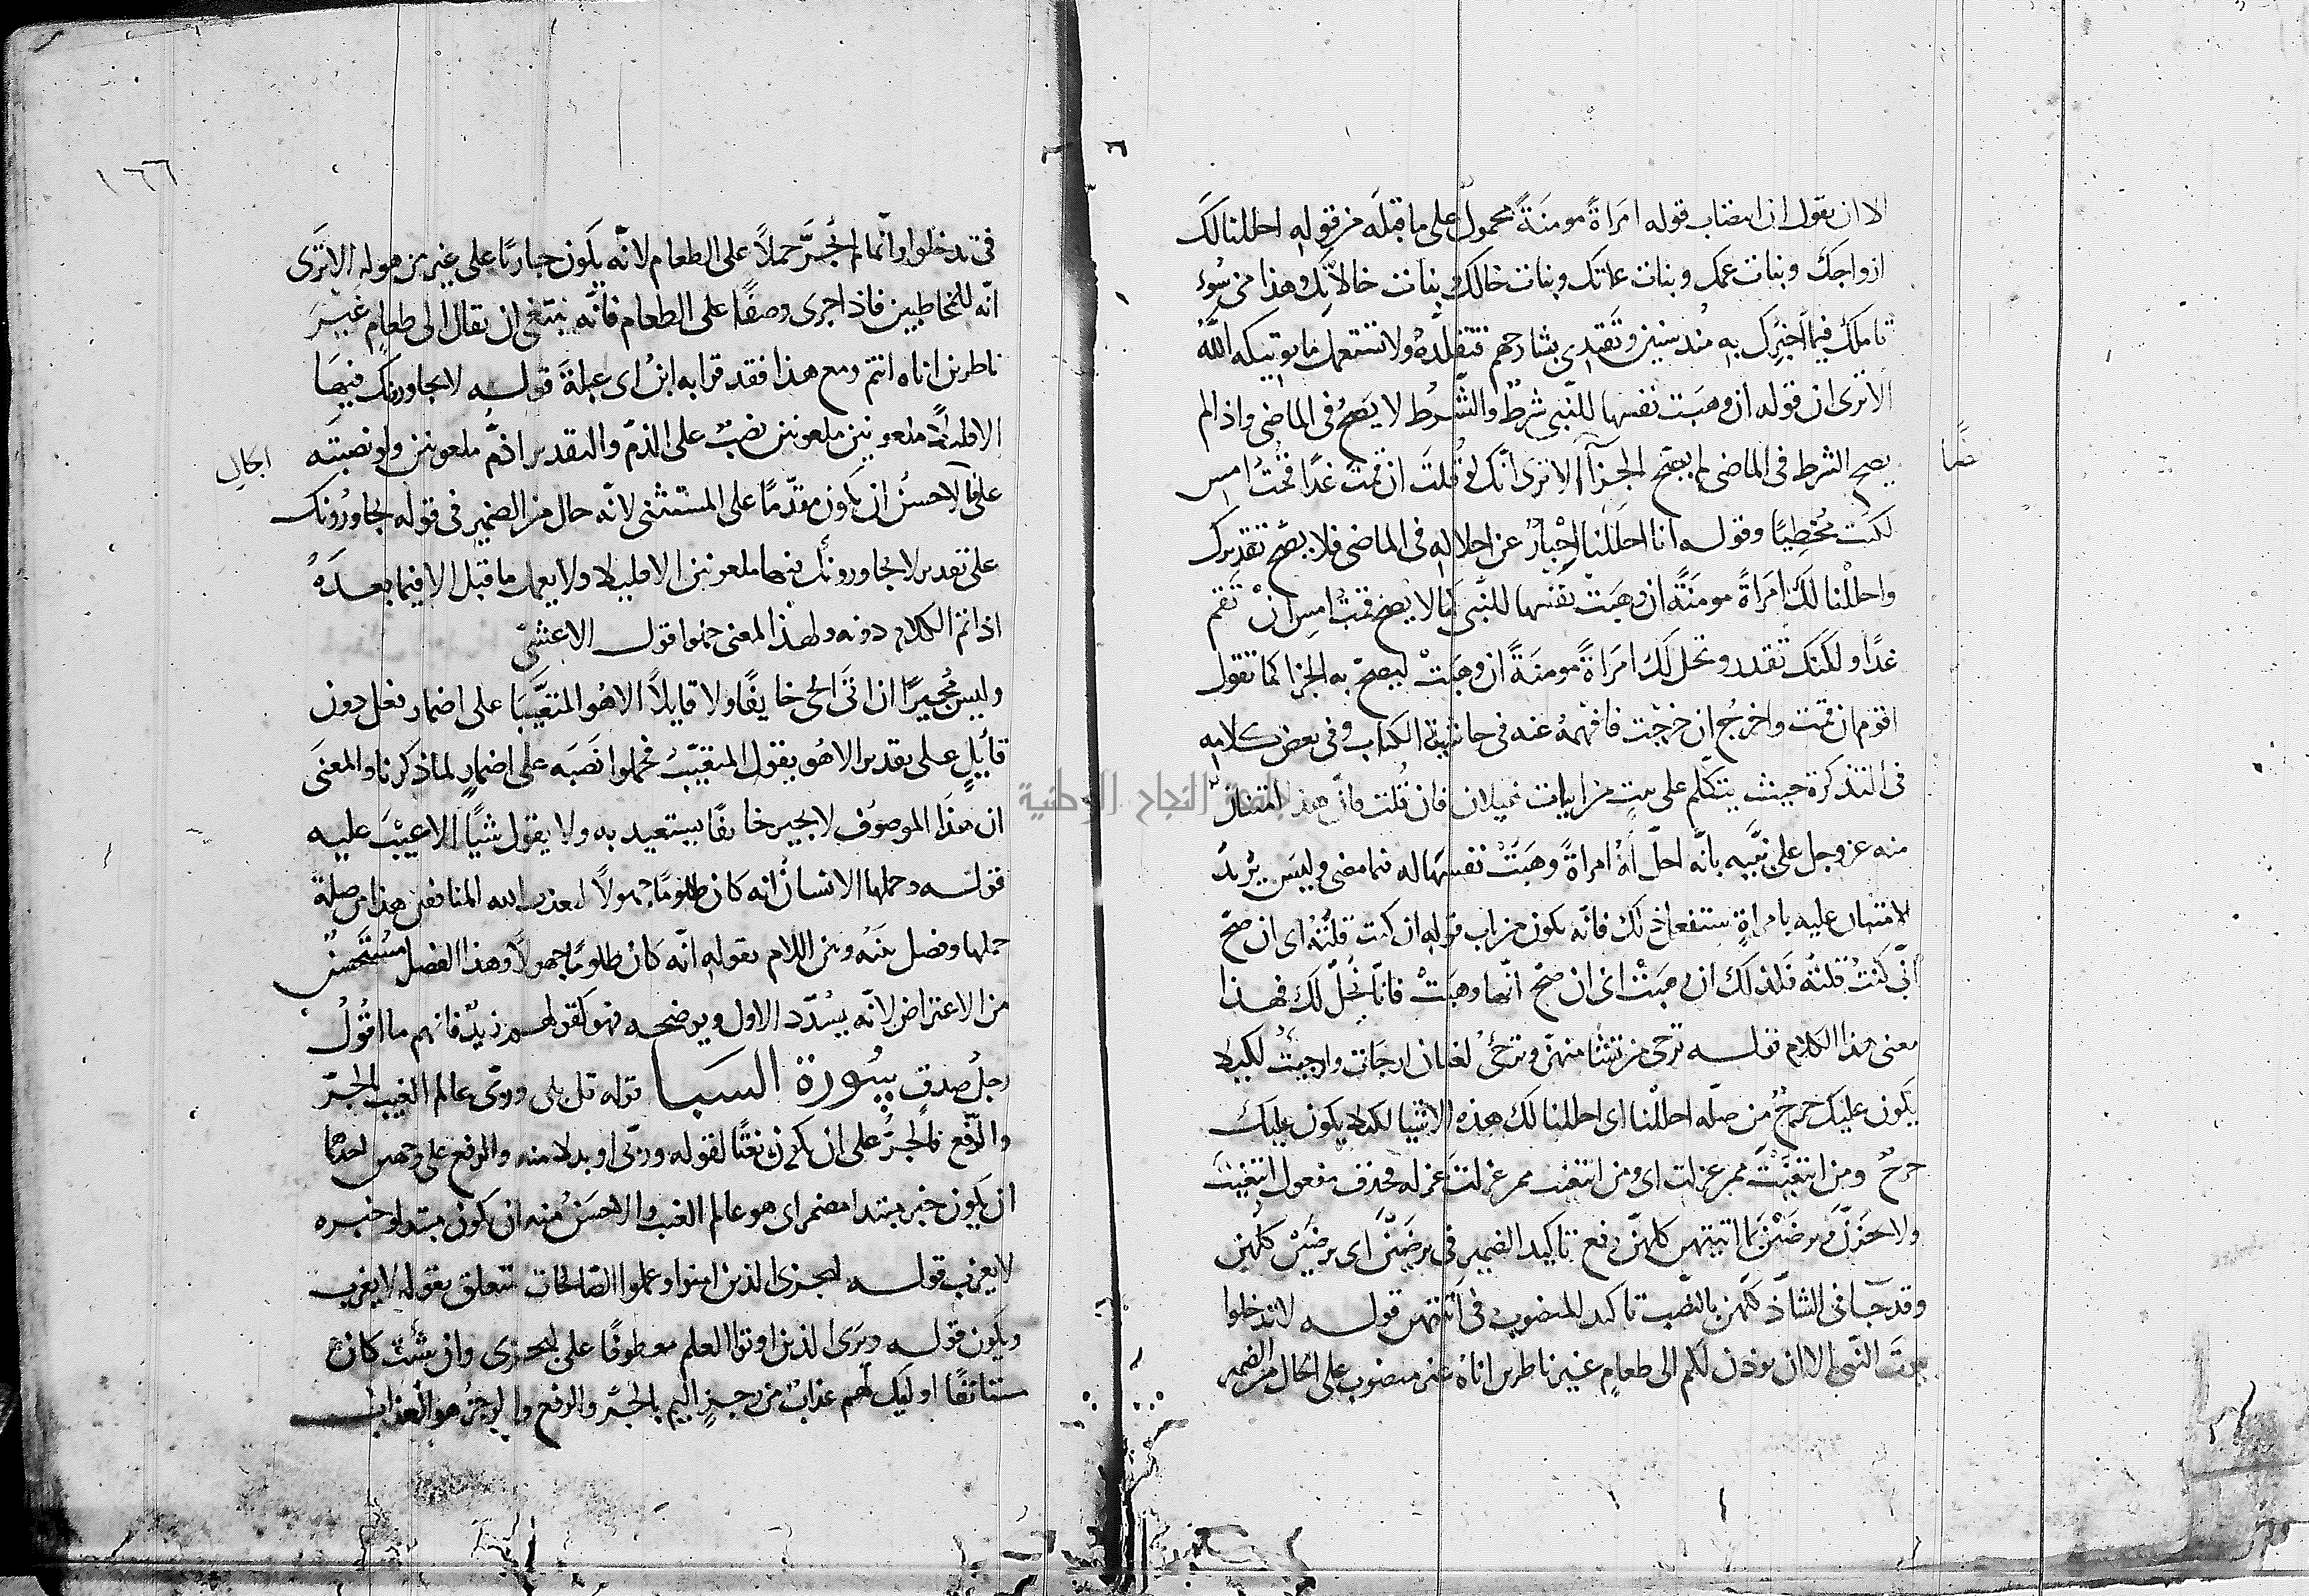 الا ان يقول ان انتصاب قوله امَراةً مومنَةً محمولٌ على ما قبله من قولهِ احللنا لكَ
ازواجكَ وبنات عمك وبنات عماتك وبنات خالك وبنات خالاتك وهذا من سُوء
تاملك فيما اخبرك به مُنذ سنين وتقتدى بشارحهم فتقلّدهُ ولا تستعمل ما يوتيكه اللَّهُ
الا ترى ان قوله ان وهبَت نفسها للنّبى شرطٌ والشّرط لا يَصحُ فى الماضى واذا لم
يصح الشرط فى الماضى لم يصَح الجزآ الا ترى انّك لو قُلتَ ان قمتَ غدًا قمتُ امس
لكنتَ مُخطِيًا وقوله انا احللنا اخبارٌ عن احلاله فى الماضى فلا يصح تقديرك
واحللنا لكَ امَراةً مومَنةً ان وهبَتْ نفسها للنّبى كما لا يصح قمتُ امسِ انْ تقم
غدًا ولكنك تقدر ونحل لكَ امَراةً مومنَةً ان وهبَتْ ليصحّ به الجزا كما تقول
اقوم ان قمت واخرجُ ان خرجت فافهمهُ عنه فى حاشية الكتاب وفى بعض كلامه
فى التذكرة حيث يتكلم على بيت من ابيات غيلان فان قُلتَ فانّ هذا امتنانٌ
منه عز وجل على نبّيه بانّه احلّ لهُ امراةً وهَبَتْ نفسهَا له فيما مضى وليسَ يُريدُ
الامتنان عليه بامراةٍ ستفعل ذلك فانّه يكون من باب قوله ان كنت قلتُهُ اى ان صحّ
انّى كنتُ قلتهُ فكذلكَ ان وهبَتْ اى ان صحّ انّها وهبَتْ فانّا نُحلّ لك فهذا
معنى هذا الكلام قوله ترجى من تشا منهنّ وترجىُ لغتان ارجات وارجيتُ لكيلا
يكون عليك حرجٌ من صلّه احللْنا اى احللنا لك هذه الاشيا لكيلا يكون عليكَ
حرجٌ ومن ابتغيْتَ ممن عزلت اى ومن ابتغيت ممن عزلتَ عزله فحذف مفعول ابتغيتَ
ولا يحَزنّ ويرضَيْنَ بما اتيتهن كلهنّ رفع تاكيد الضمير فى يرضَيْنَ اى يرضَيْن كلّهنّ
وقد جآ فى الشّاذ كلّهنّ بالنصّب تاكيد المنصوب فى اتيتهن قوله لا تدخلوا
بيوتَ النّبى الا ان يوذن لكم الى طعامٍ غير ناظرين اناهُ غير منصوب على الحال من الضمير
ضًا
١٦٦
فى تدخلوا وانّما لم يُجَرَّ حملاً على الطعام لانّه يكون جاريًا على غير من هو له الا ترَى
انّه للمخاطبين فاذا جرى وصفًا على الطعام فانّه ينبغى ان يقال الى طعامٍ غَيرَ
ناظرين اناه انتم ومع هذا فقد قرا به ابنُ ابى عبلةَ قوله لا يجاورونك فيهَا
الا قليلاً ملعونين ملعونين نصبٌ على الذمّ والتقدير اذمُّ ملعونين ولو نصبتَه
اكالِ
على فالاحسنُ ان يكون مقدّمًا على المستثنى لانّه حال من الضمير فى قوله يجاورونك
على تقدير لا يجاورونك فيها ملعونين الا قليلا ولا يعمل ما قبل الا فيما بعدَهُ
اذا تم الكلام دونه ولهذا المعنى حملوا قول الاعشىْ
وليس مُجيرًا ان اتَى الحى خايفٌ ولا قايلاً الا هُو المتعَيَّبَا على اضمار فعل دون
قايلٍ على تقدير الا هُو يقول المتعيّبُ فحملوا نَصبَه على اضمارٍ لما ذكرنا والمعنَى
ان هذَا الموصوُف لا يجير خايفًا يستعيد به ولا يقول شيًا الا عيْبَ عليه
قوله وحملها الانسانُ انه كان ظلومًا جهولاً ليعذب الله المنافقين هذا من صلة
حملها وفصل بينَهُ وبين اللام بقوله انّه كان ظلومًا جهولاً وهذا الفصل مُستَحسنٌ
من الاعتراض لانّه يسُدّد الاول ويوضحه فهو كقولهم زيدٌ فافهم ما اقُولُ
رجلُ صدقٍ سُورة السبا قوله قل بلى وربّى عالم الغيب بالجرّ
والرّفع فالجرُّ على ان يكون نعتًا لقوله وربّى او بدلا منه والرفع على وجهين احدهما
ان يكون خبر مبتدا مضمر اى هو عالم الغيب والاحسَنُ منه ان يكون مبتدا وخبره
لا يعزب قوله ليجزى الذين امنوا وعملوا الصّالحات متعلق بقوله لا يعزب
ويكون قوله ويرَى الذين اوتوا العلم معطوفًا على ليجزى وان شئت كان
مستانفًا اوليك لهم عذابٌ من رجزٍ اليم بالجّر والرفع والرجزُ هو العذاب